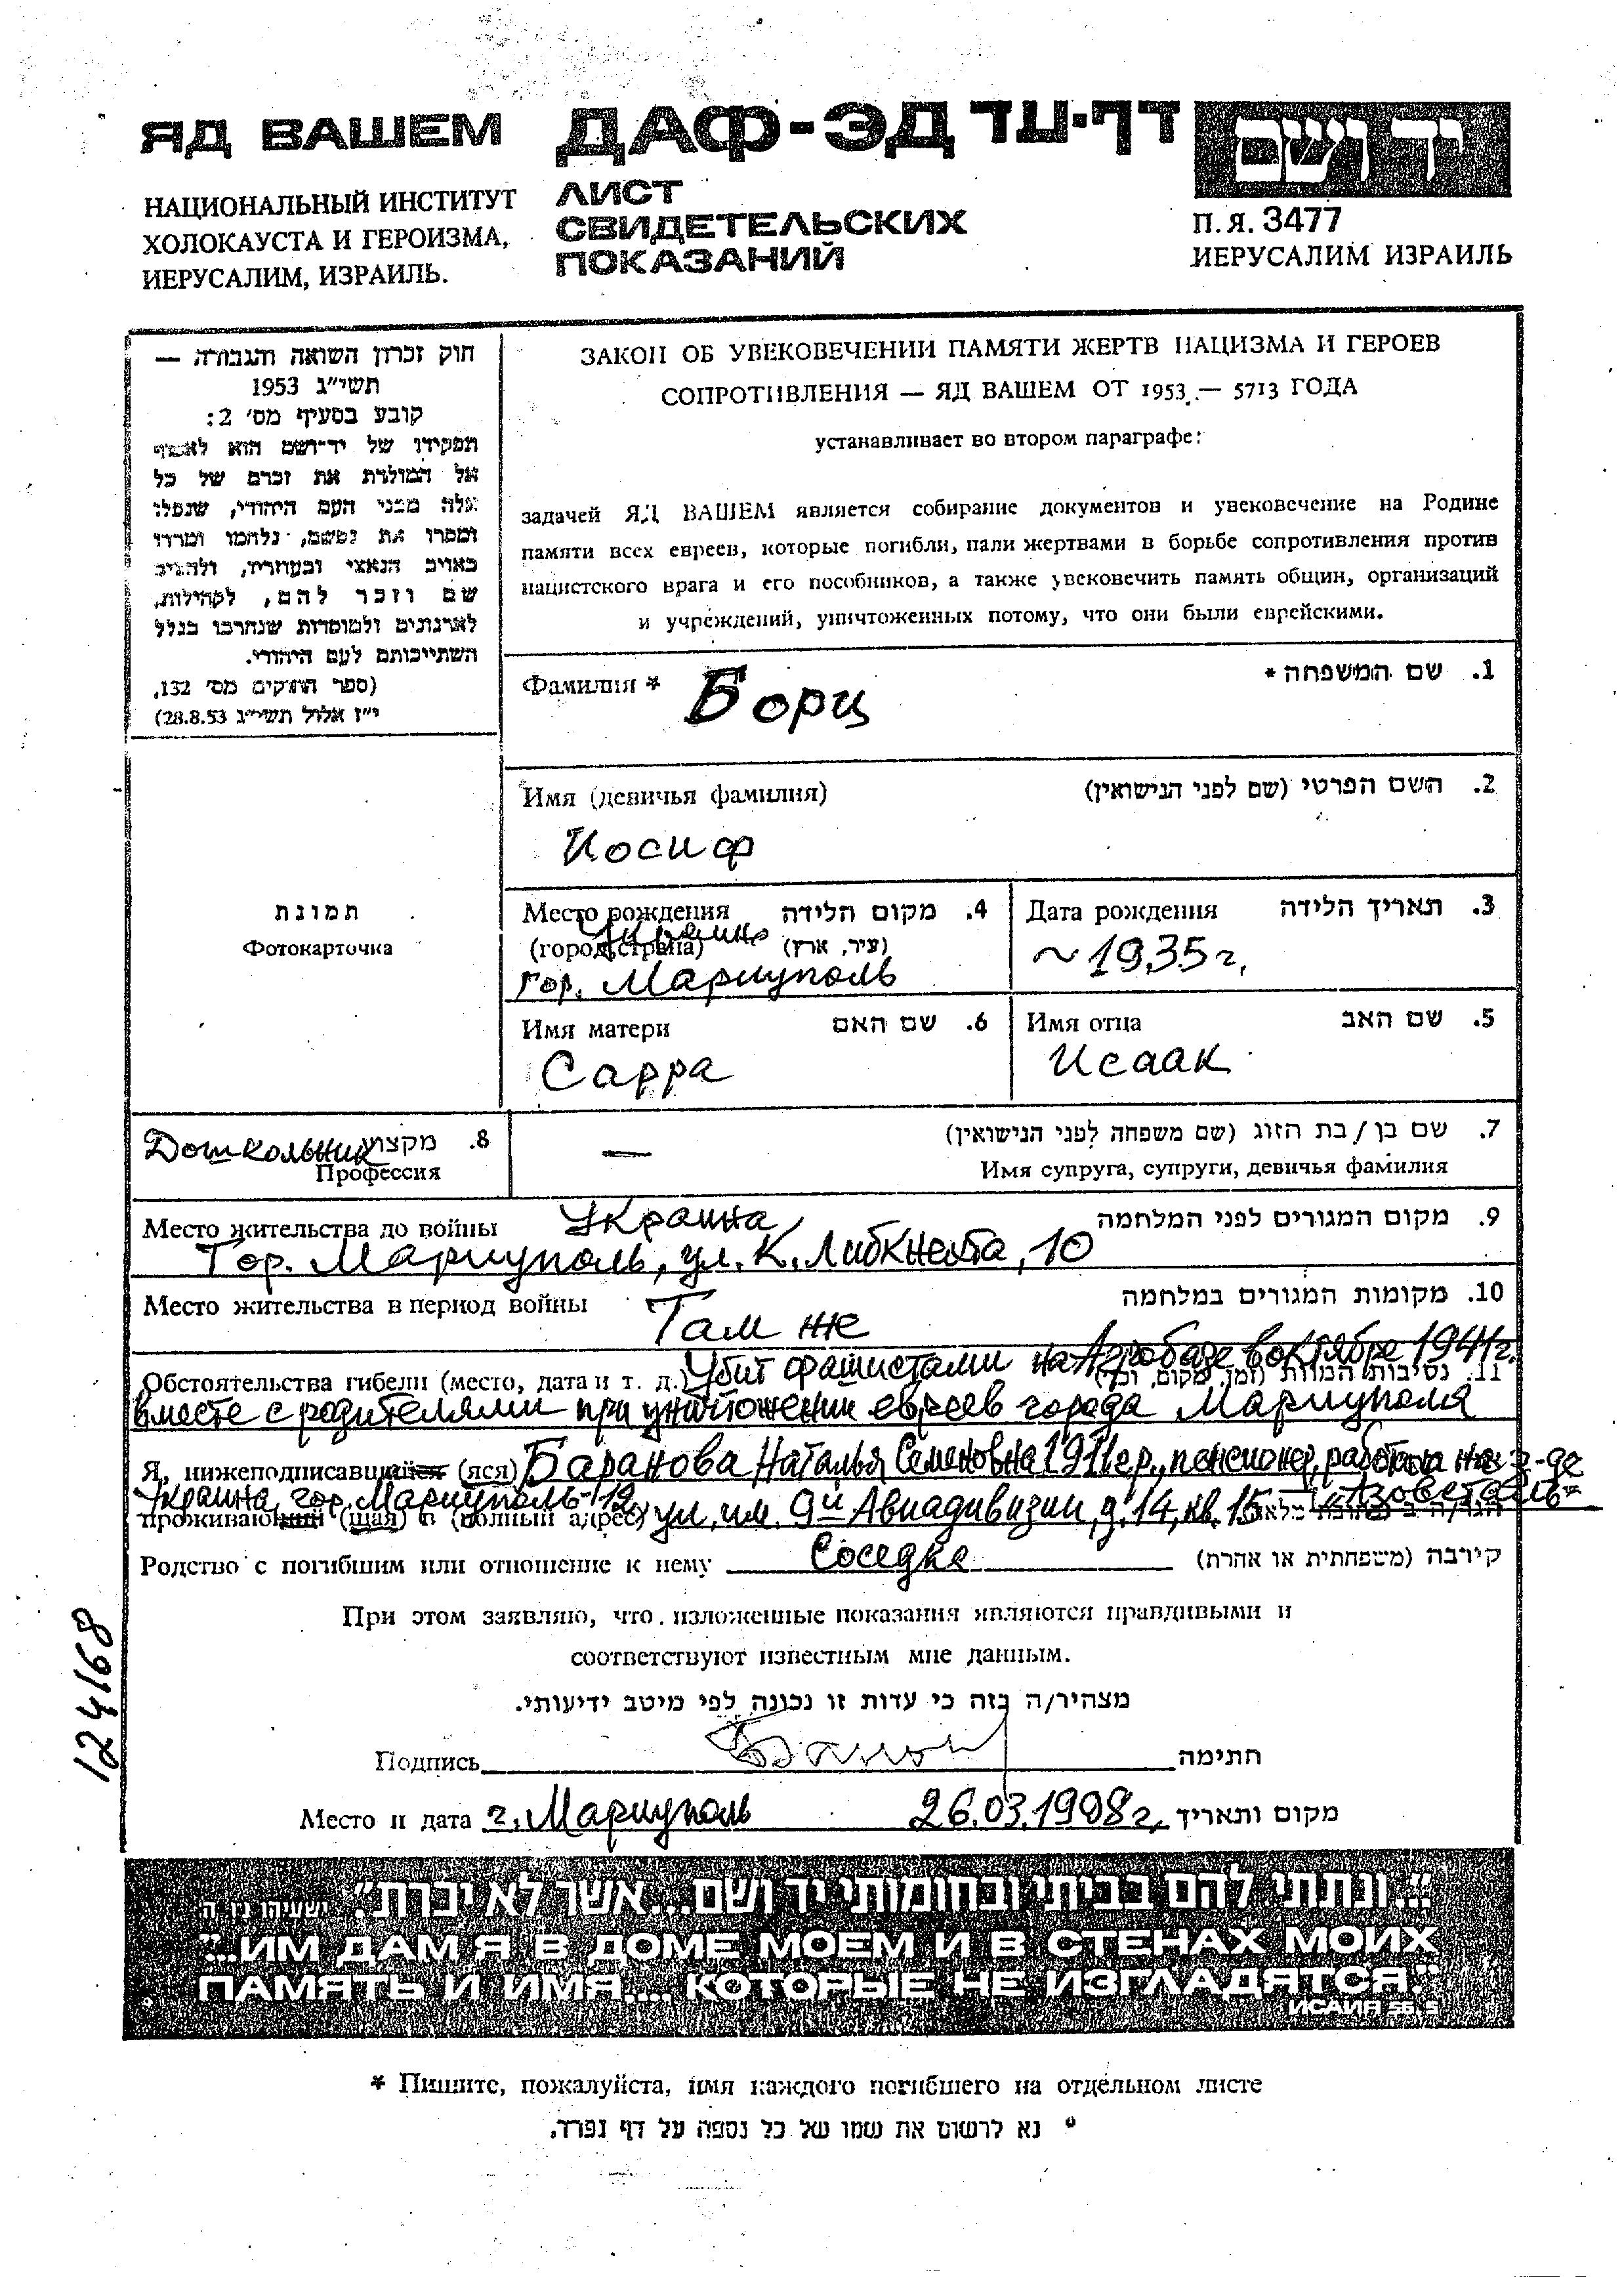 ЯД ВАШЕМ
НАЦИОНАЛЬНЫЙ ИНСТИТУТ
ХОЛОКАУСТА И ГЕРОИЗМА,
ИЕРУСАЛИМ, ИЗРАИЛЬ.
ДАФ-ЭД דף-עד
ЛИСТ
СВИДЕТЕЛЬСКИХ
ПОКАЗАНИЙ
יד ושם
П.Я. 3477
ИЕРУСАЛИМ ИЗРАИЛЬ
חוק זכרון השואה והגבורה —
תשי״ג 1953
קובע בסעיף מס׳ 2:
תפקידו של יד־ושם הוא לאסוף
אל המולדת את זכרם של כל
אלה מבני העם היהודי, שנפלו
ומסרו את נפשם, נלחמו ומרדו
באויב הנאצי ובעוזריו, ולהציב
שם וזכר להם, לקהילות,
לארגונים ולמוסדות שנחרבו בגלל
השתייכותם לעם היהודי.
(ספר החוקים מס׳ 132,
י״ז אלול תשי״ג 28.8.53)
ЗАКОН ОБ УВЕКОВЕЧЕНИИ ПАМЯТИ ЖЕРТВ НАЦИЗМА И ГЕРОЕВ
СОПРОТИВЛЕНИЯ — ЯД ВАШЕМ ОТ 1953 — 5713 ГОДА
устанавливает во втором параграфе:
задачей ЯД ВАШЕМ является собирание документов и увековечение на Родине
памяти всех евреев, которые погибли, пали жертвами в борьбе сопротивления против
нацистского врага и его пособников, а также увековечить память общин, организаций
и учреждений, уничтоженных потому, что они были еврейскими.
Фамилия * Борц 1. שם המשפחה *
Имя (девичья фамилия) 2. השם הפרטי (שם לפני הנישואין)
Иосиф
תמונת
Фотокарточка
Место рождения 4. מקום הלידה
(город, страна) Украина (עיר, ארץ)
гор. Мариуполь
Дата рождения 3. תאריך הלידה
~1935г.
Имя матери 6. שם האם
Сарра
Имя отца 5. שם האב
Исаак
Дошкольник 8. מקצוע
Профессия
— 7. שם בן/בת הזוג (שם משפחה לפני הנישואין)
Имя супруга, супруги, девичья фамилия
Место жительства до войны Украина 9. מקום המגורים לפני המלחמה
Гор. Мариуполь, ул. К. Либкнехта, 10
Место жительства в период войны 10. מקומות המגורים במלחמה
Там же
Убит фашистами на Агробазе в октябре 1941г.
Обстоятельства гибели (место, дата и т. д.) 11. נסיבות המוות (זמן, מקום, וכו׳)
вместе с родителями при уничтожении евреев города Мариуполя
Я, нижеподписавшийся (яся) Баранова Наталья Семеновна 1911г.р., пенсионер, работала на з-де
Украина, гор. Мариуполь-12 "Азовсталь"
проживающий (щая) в (полный адрес) ул. им. 9й Авиадивизии, д. 14, кв. 15
Родство с погибшим или отношение к нему Соседка קירבה (משפחתית או אחרת)
При этом заявляю, что изложенные показания являются правдивыми и
соответствуют известным мне данным.
מצהיר/ה בזה כי עדות זו נכונה לפי מיטב ידיעותי.
Подпись חתימה
Место и дата г. Мариуполь 26.03.1998г. מקום ותאריך
124168
"..ונתתי להם בביתי ובחומותי יד ושם...אשר לא יכרת". ישעיהו נו ה
"..ИМ ДАМ Я В ДОМЕ МОЕМ И В СТЕНАХ МОИХ
ПАМЯТЬ И ИМЯ... КОТОРЫЕ НЕ ИЗГЛАДЯТСЯ."
ИСАИЯ 56, 5
* Пишите, пожалуйста, имя каждого погибшего на отдельном листе
* נא לרשום את שמו של כל נספה על דף נפרד.